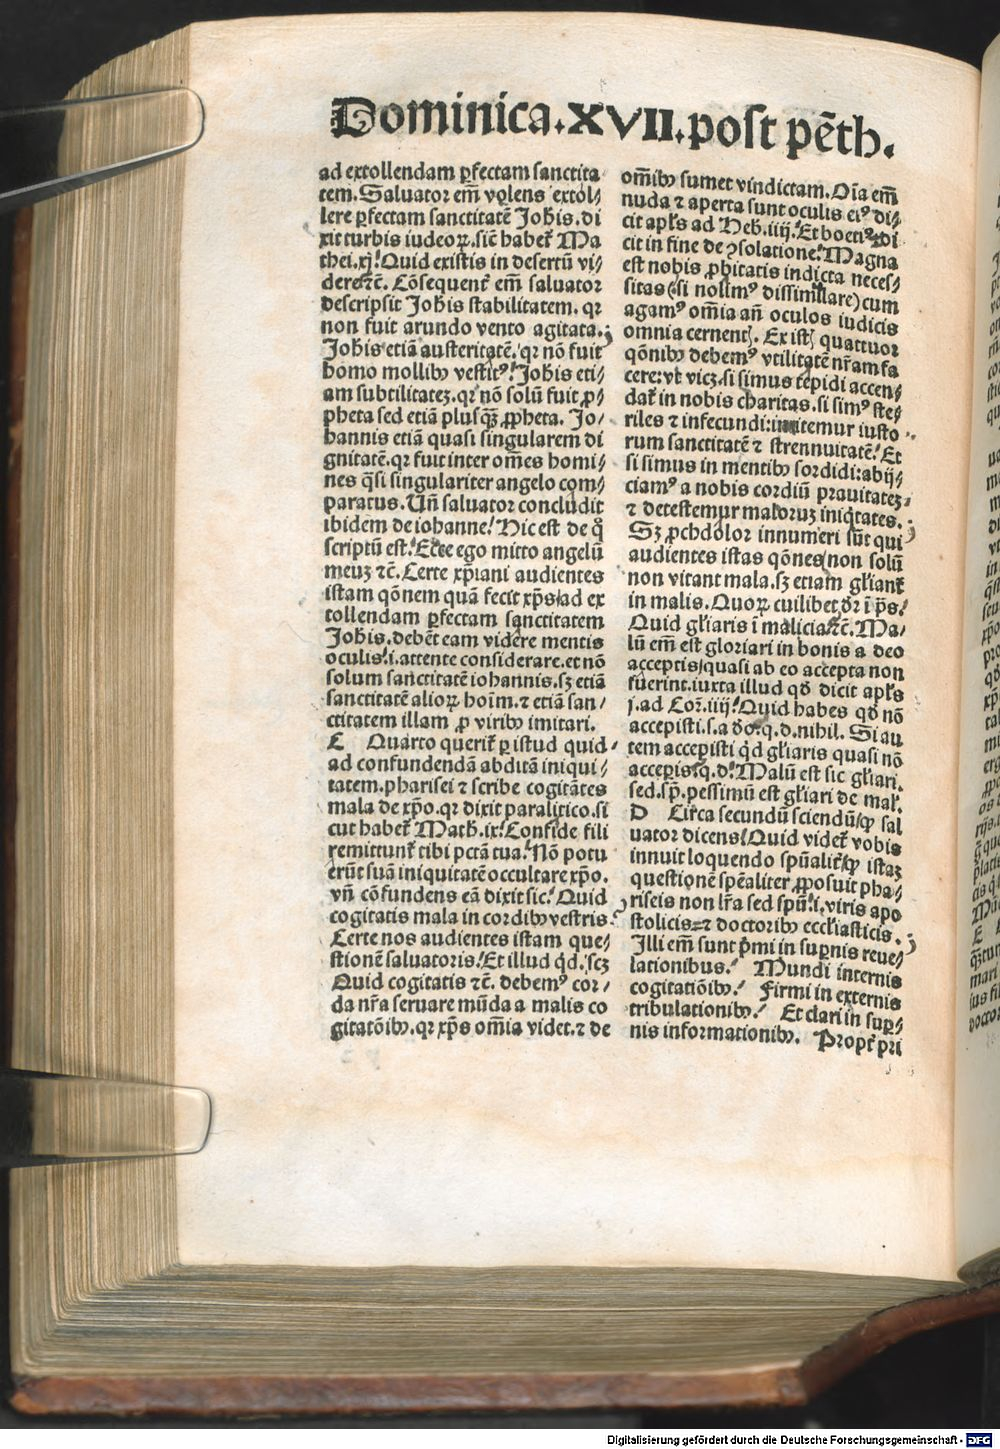 Dominica.XVII.post pēth.
ad extollendam ꝑfectam sanctita
tem. Saluator em̄ volens extol⸗
lere ꝑfectam sanctitatē Joh̄is. di
xit turbis iudeoꝝ. sic̄ habet̃ Ma
thei. xj. Quid existis in desertū vi⸗
dere ⁊c̄. Cōsequent̃ em̄ saluator
descripsit Joh̄is stabilitatem. qꝛ
non fuit arundo vento agitata.
Joh̄is etiā austeritatē. qꝛ nō fuit
homo mollibꝰ vestitꝰ. Joh̄is eti⸗
am subtilitateꝫ. qꝛ nō solū fuit ꝓ⸗
pheta sed etiā plusqꝫ̄ ꝓpheta. Jo⸗
hannis etiā quasi singularem di
gnitatē. qꝛ fuit inter om̄es homi⸗
nes q̄si singulariter angelo com⸗
paratus. Un̄ saluator concludit
ibidem de iohanne. Hic est de q̊
scriptū est. Ecce ego mitto angelū
meuꝫ ⁊c̄. Certe xp̄iani audientes
istam qōnem quā fecit xp̄s/ad ex
tollendam ꝑfectam sanctitatem
Joh̄is. debēt eam videre mentis
oculis. i. attente considerare. et nō
solum sanctitatē iohannis. sꝫ etiā
sanctitatē alioꝝ hoīm. ⁊ etiā san⸗
ctitatem illam ꝓ viribꝰ imitari.
C Quarto querit̃ ꝑ istud quid
ad confundendā abditā iniqui⸗
tatem. pharisei ⁊ scribe cogitātes
mala de xp̄o. qꝛ dixit paralitico. si
cut habet̃ Math. ix. Confide fili
remittunt̃ tibi pctā tua. Nō potu
erūt suā iniquitatē occultare xp̄o.
vn̄ cōfundens eā dixit sic. Quid
cogitatis mala in cordibꝰ vestris.
Certe nos audientes istam que⸗
stionē saluatoris. Et illud q̄d. scꝫ
Quid cogitatis ⁊c̄. debemꝰ cor⸗
da nr̄a seruare mūda a malis co
gitatōibꝰ. qꝛ xp̄s om̄ia videt. ⁊ de
om̄ibꝰ sumet vindictam. Oīa em̄
nuda ⁊ aperta sunt oculis eiꝰ di⸗
cit apl̄s ad Heb. iiij. Et boetiꝰ di
cit in fine de ꝯsolatione. Magna
est nobis ꝓbitatis indicta neces⸗
sitas (si nolimꝰ dissimilare) cum
agamꝰ om̄ia an̄ oculos iudicis
omnia cernentꝭ. Ex istꝭ quattuor
qōnibꝰ debemꝰ vtilitatē nr̄am fa
cere: vt vicꝫ. si simus tepidi accen⸗
dat̃ in nobis charitas. si simꝰ ste⸗
riles ⁊ infecundi: imitemur iusto
rum sanctitatē ⁊ strennuitatē. Et
si simus in mentibꝰ sordidi: abij⸗
ciamꝰ a nobis cordiū prauitateꝫ
⁊ detestemur maloruꝫ iniq̄tates.
Sꝫ ꝓchdolor innumeri sūt qui
audientes istas qōnes/non solū
non vitant mala. sꝫ etiam gl̄iant̃
in malis. Quoꝝ cuilibet dr̄ ī pś.
Quid gl̄iaris ī malicia ⁊c̄. Ma⸗
lū em̄ est gloriari in bonis a deo
acceptis/quasi ab eo accepta non
fuerint. iuxta illud qđ dicit apl̄s
j. ad Cor̄. iiij. Quid habes qđ nō
accepisti. s. a deo. q. d. nihil. Si au
tem accepisti q̇d gl̄iaris quasi nō
acceperis. q. d. Malū est sic gl̄iari.
sed. sp̄. pessimū est gl̄iari de mal̄.
D Circa secundū sciendū/ꝙ sal
uator dicens. Quid videt̃ vobis
innuit loquendo spūalit̃/ꝙ istaꝫ
questionē spēaliter ꝓposuit pha⸗
riseis non lr̄a sed spū. i. viris apo
stolicis ⁊ doctoribꝰ eccl̄iasticis.
Illi em̄ sunt p̄mi in suꝑnis reue⸗
lationibus. Mundi internis
cogitatiōibꝰ. Firmi in externis
tribulationibꝰ. Et clari in suꝑ⸗
nis informationibꝰ. Propt̃ pri
Digitalisierung gefördert durch die Deutsche Forschungsgemeinschaft - DFG